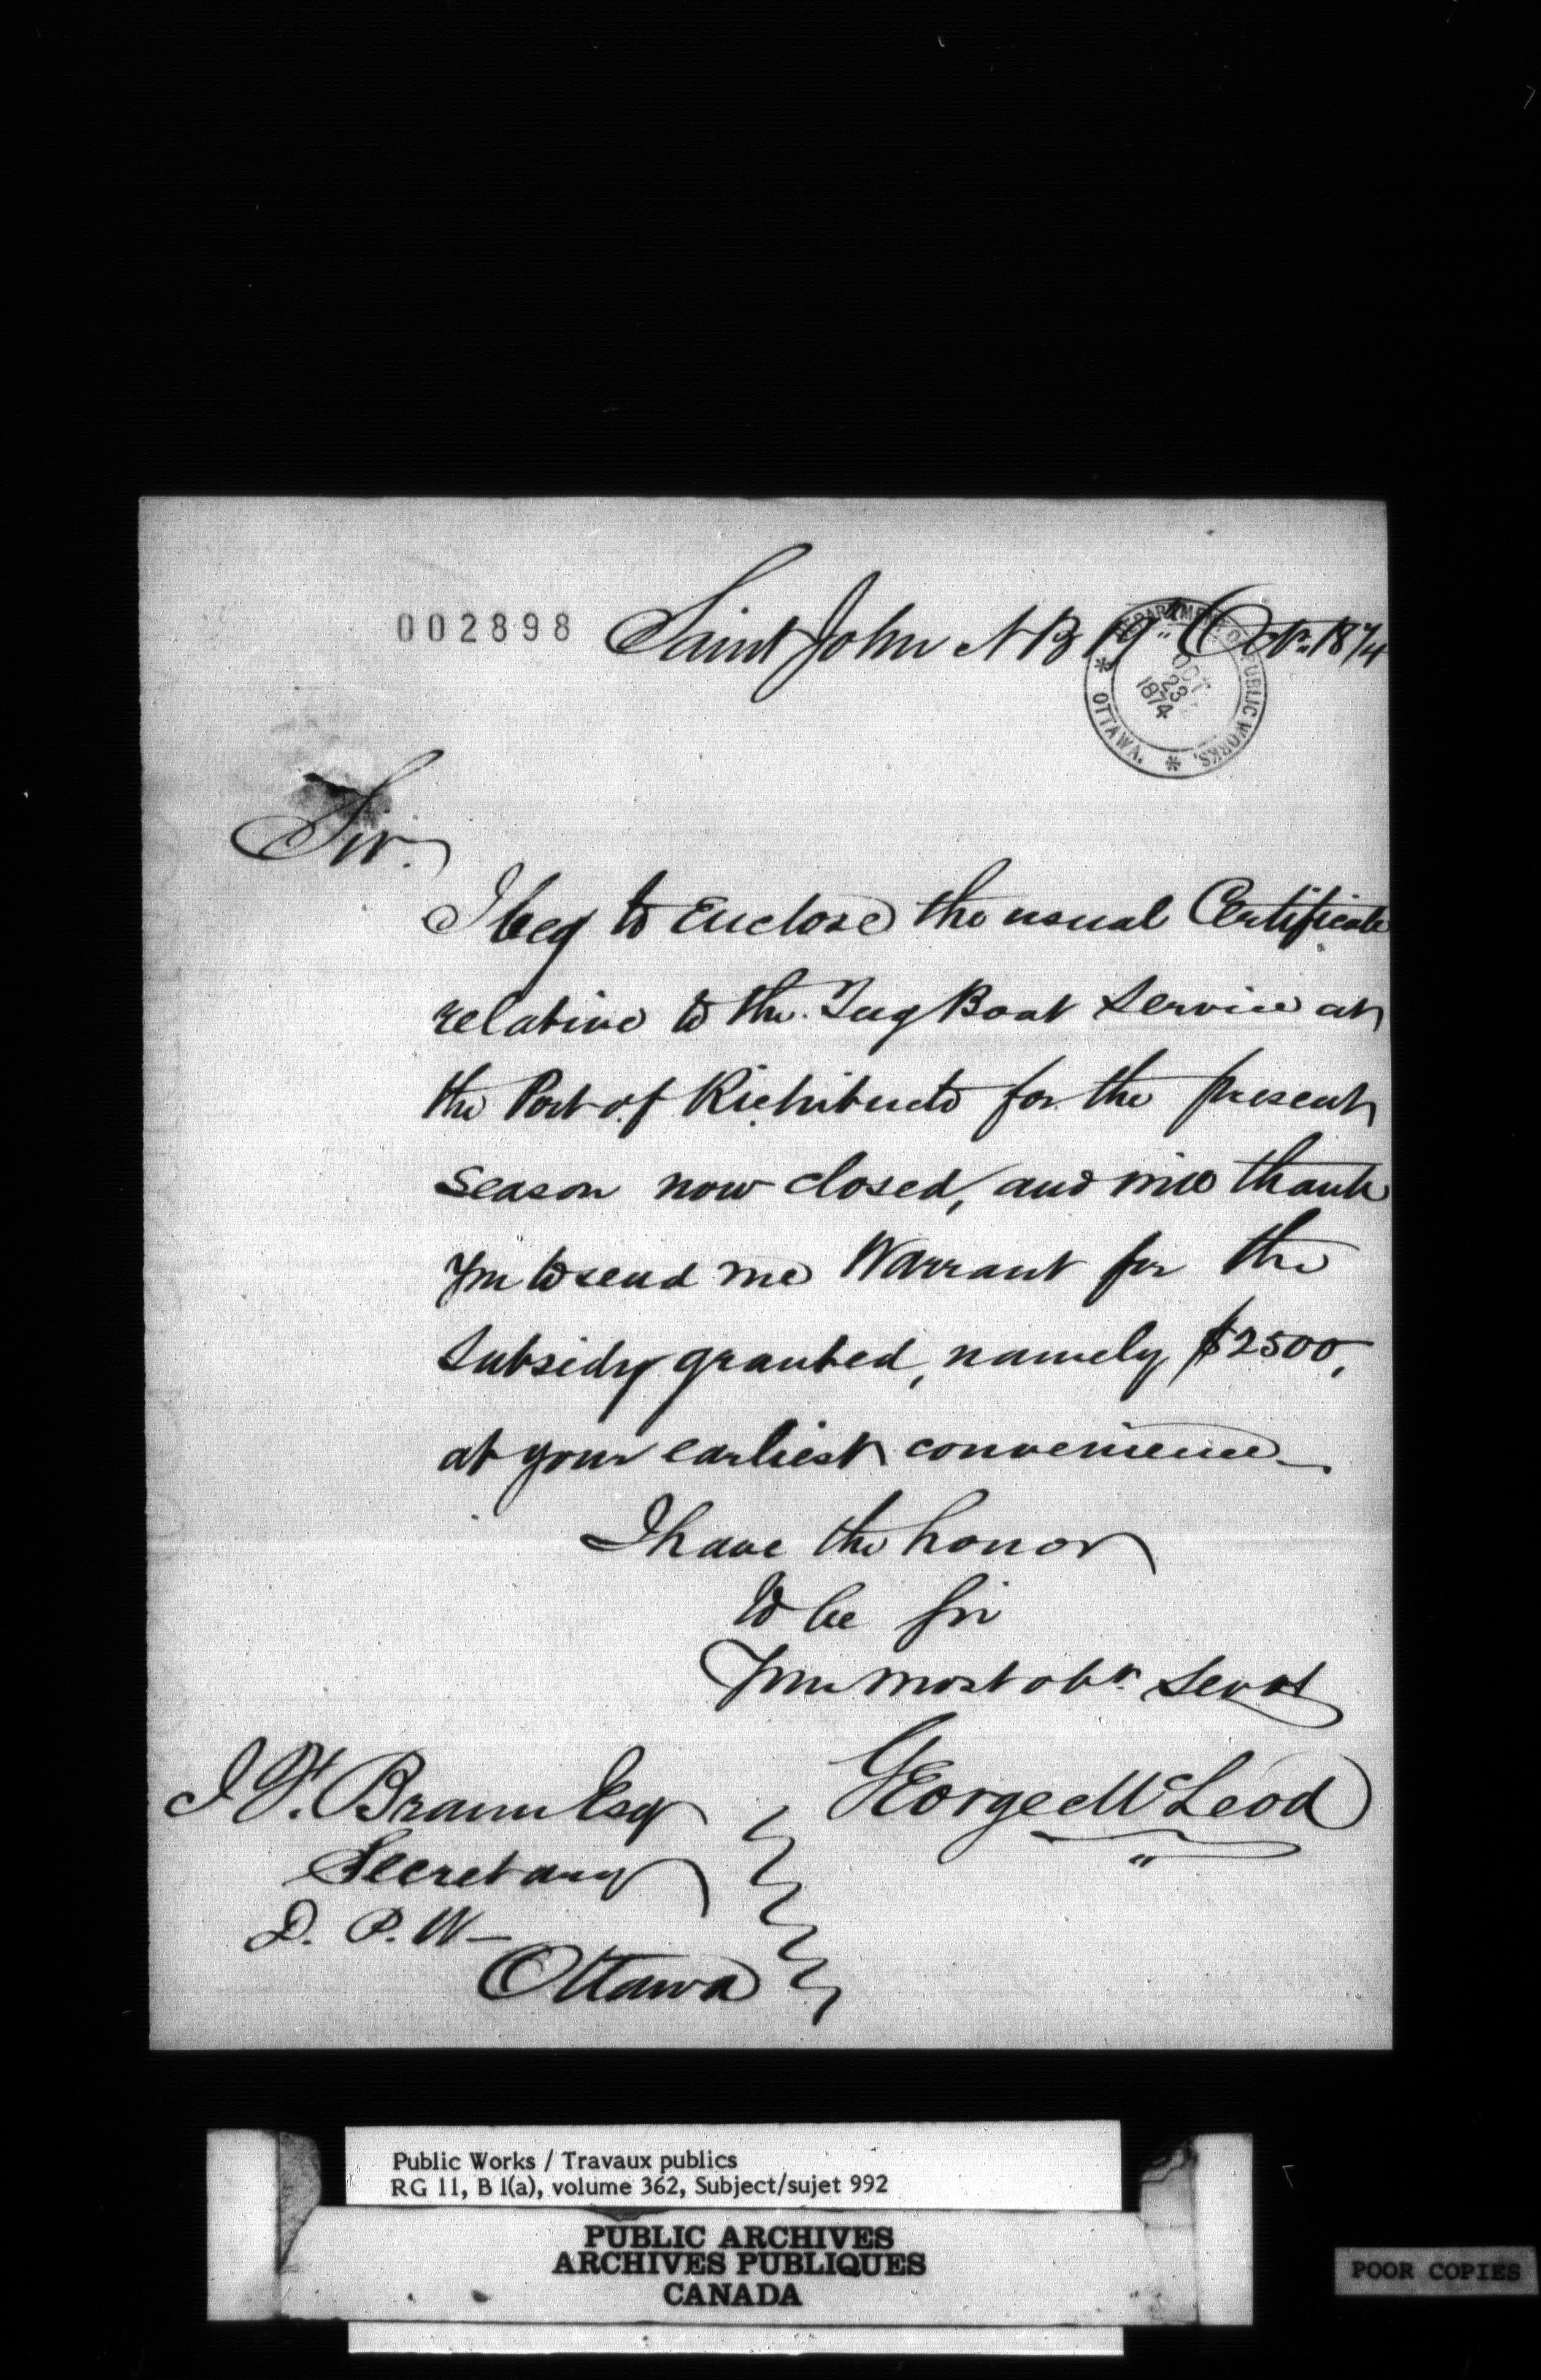 002898
Saint John N B 19" Octr. 1874
DEPARTMENT OF PUBLIC WORKS. * OTTAWA. *
OCT
23
1874
Sir.
I beg to Enclose the usual Certificate
relative to the Tug Boat Service at
the Port of Richibucto for the present
season now closed, and will thank
you to send me Warrant for the
Subsidy granted, namely $2500,
at your earliest convenience
I have the honor
to be Sir
Your most obt. Servt
George McLeod
Braun Esq
Secretary
D. P. W
Ottawa
Public Works / Travaux publics
RG 11, B 1(a), volume 362, Subject/sujet 992
PUBLIC ARCHIVES
ARCHIVES PUBLIQUES
CANADA
POOR COPIES